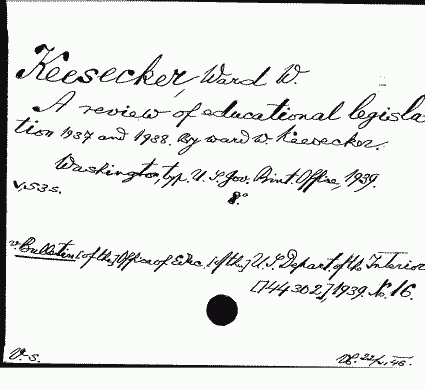 Keesecker, Ward W.
A review of educational legisla
tion 1937 and 1938. By Ward W. Keesecker.
Washington, typ. U. S. Gov. Print. Office, 1939.
v, 53 s. 8°
Bulletin [of the] Office of Educ. [of the] U. S. Depart. of the Interior
[144302], 1939. No. 16.
V.-s. 22/2, 46.